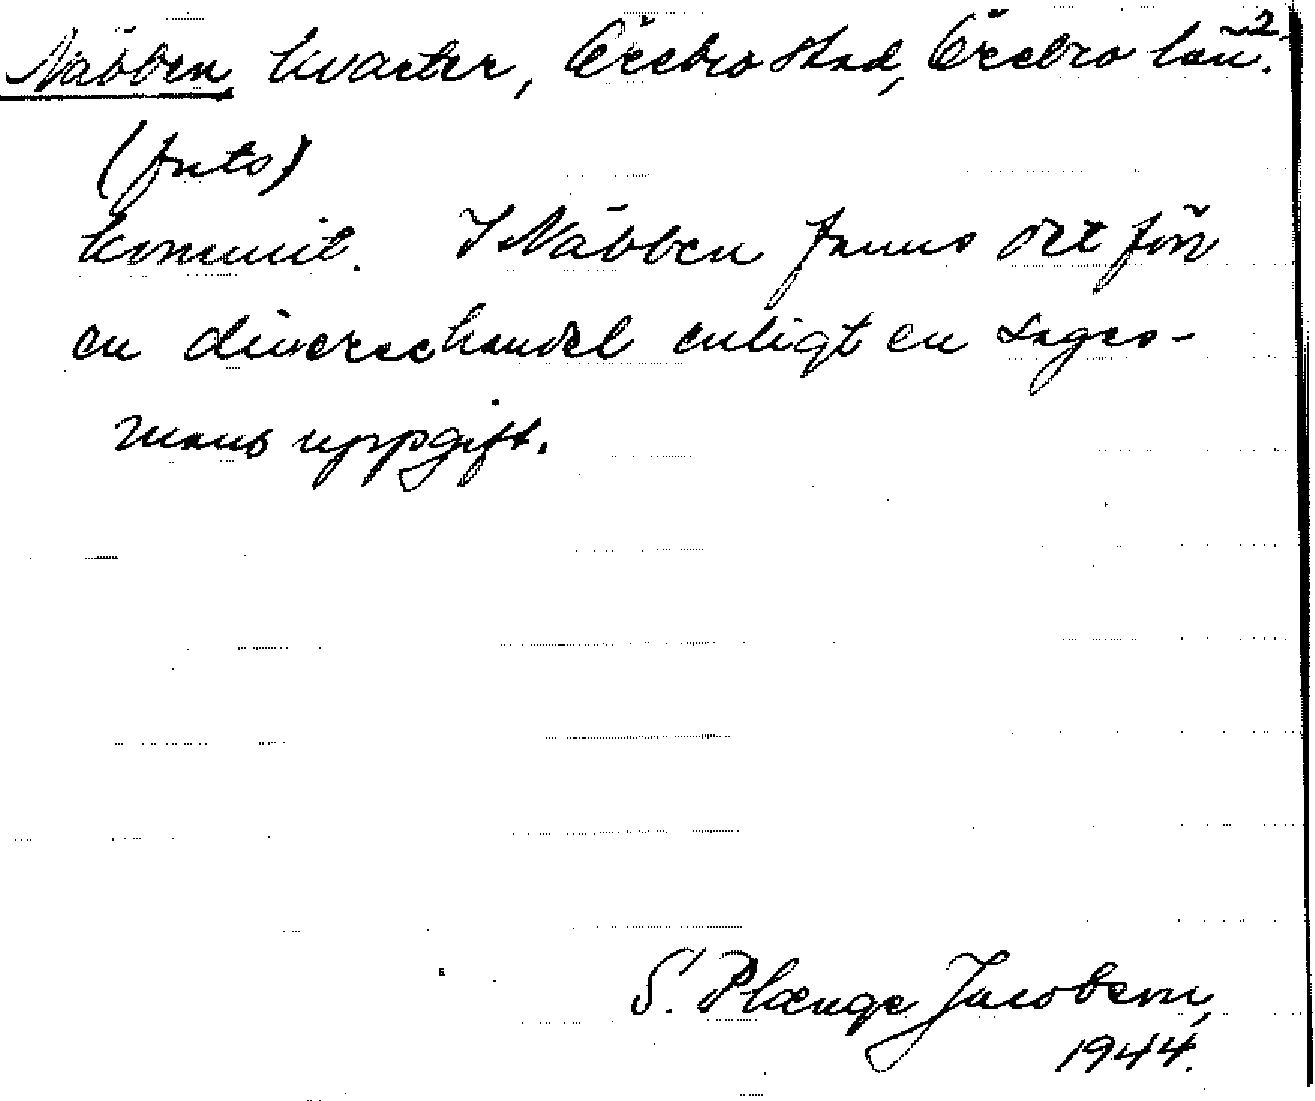 2.
Näbben, kvarter, Örebro stad, Örebro län.
(forts)
kommit. I Näbben fanns ort för
en diversehandel enligt en sages-
mans uppgift.
S. Plænge Jacobson,
1944.